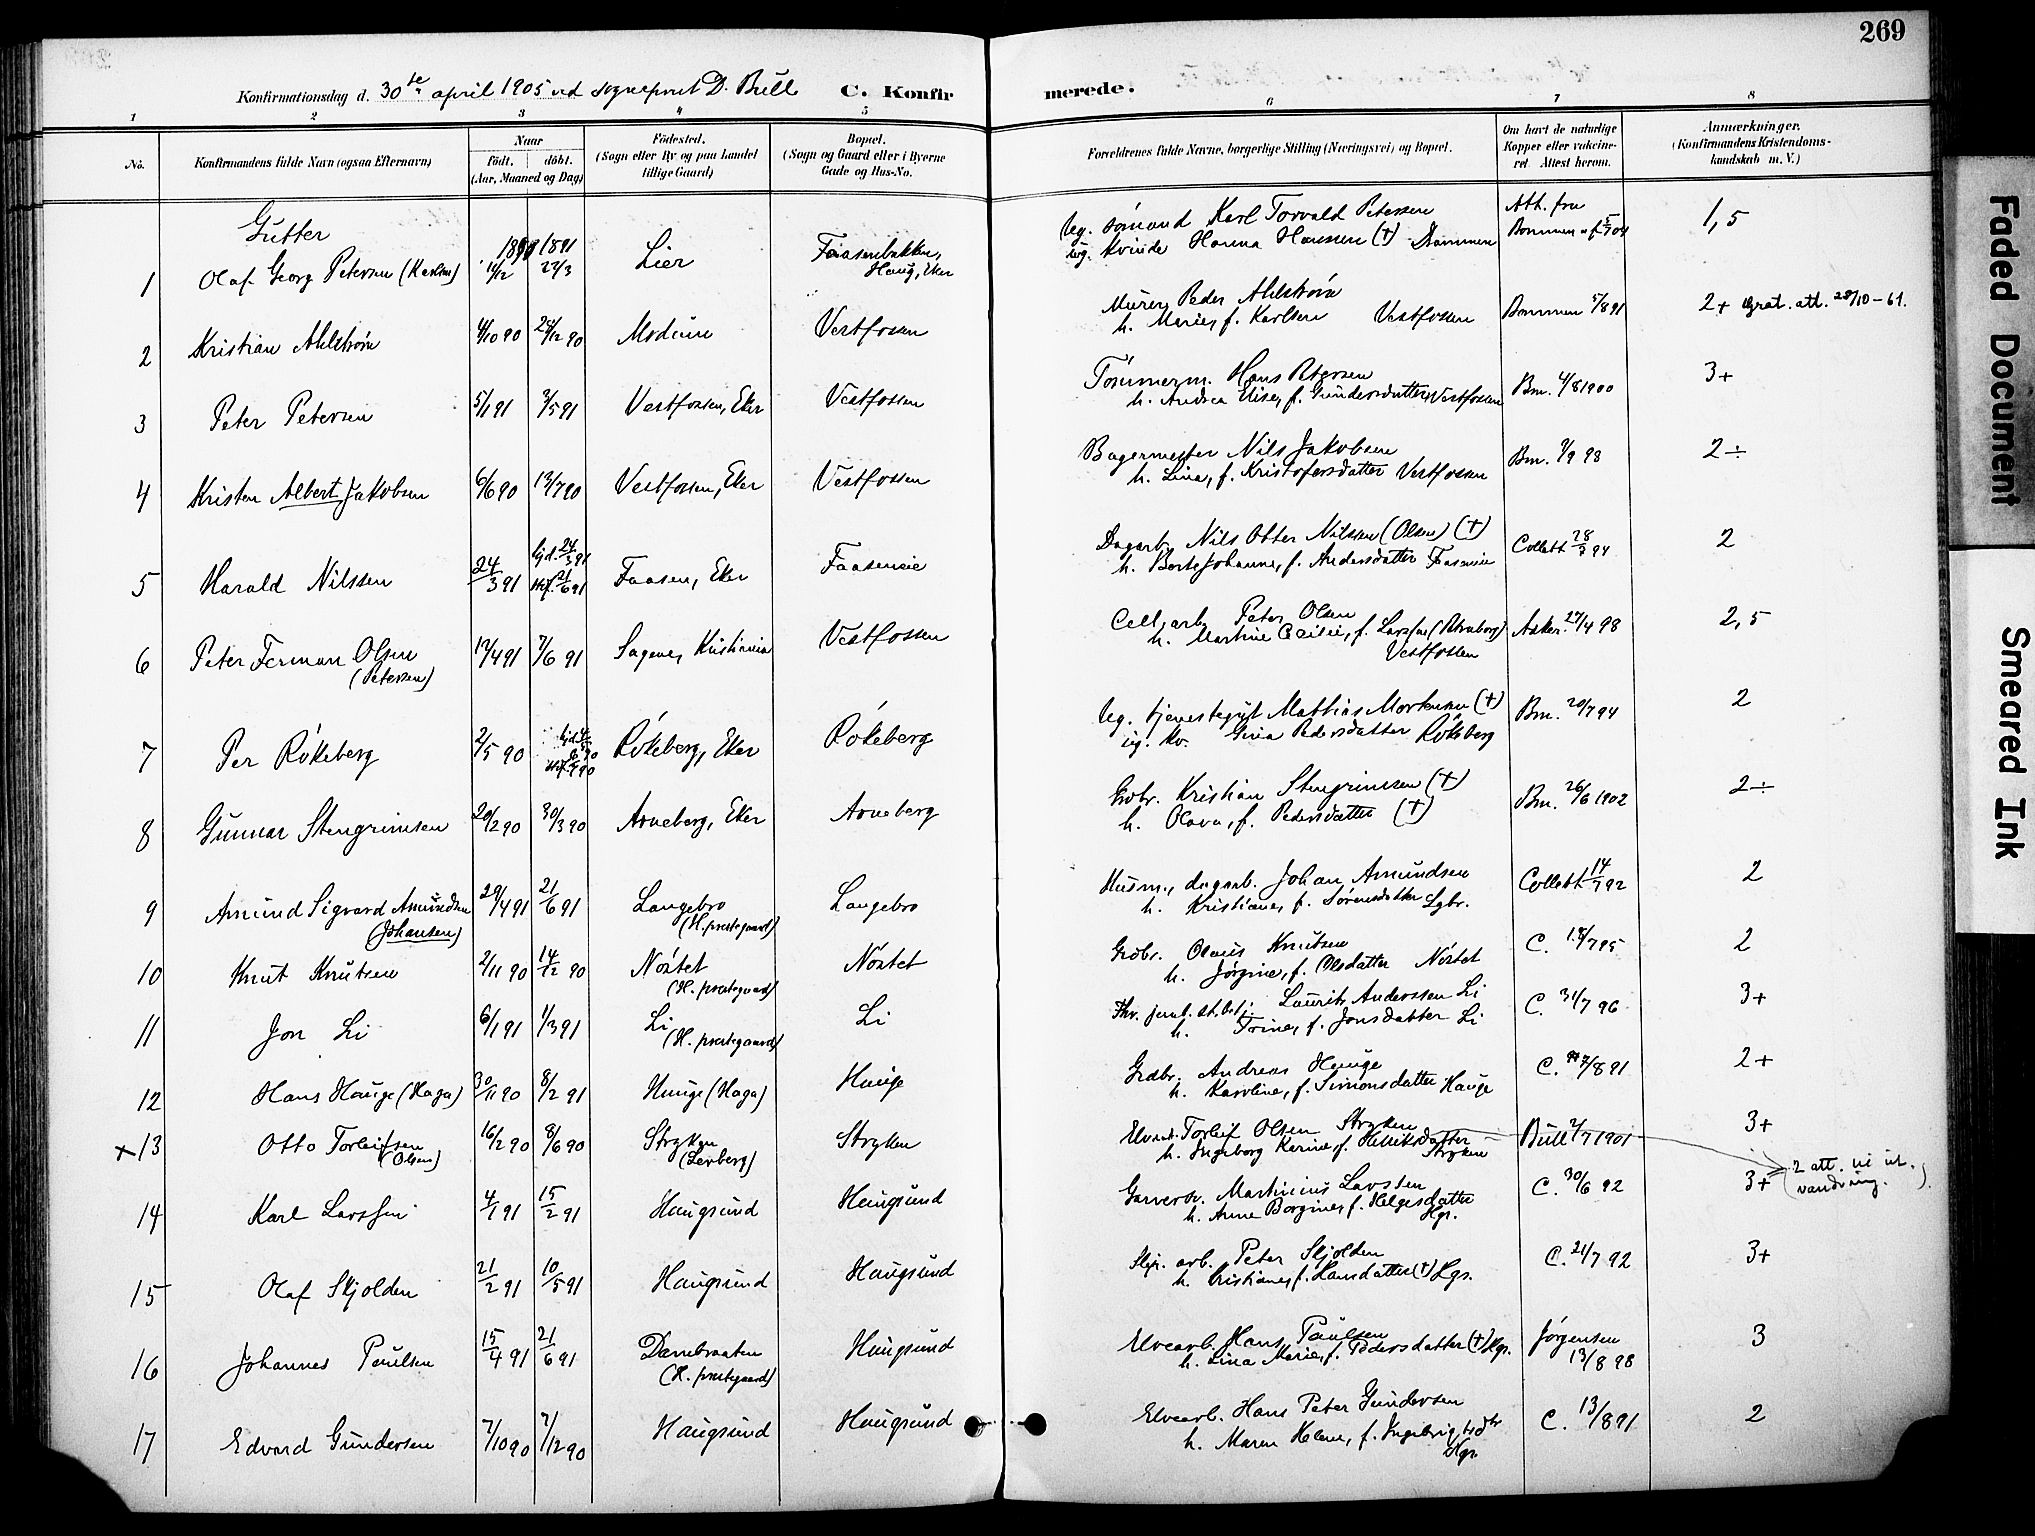 269
Konfirmationsdag d. 30te april 1905 ved sogneprest D. Bull C. Konfirmerede.
1 2 3 4 5 6 7 8
No. Konfirmandens fulde Navn (ogsaa Efternavn) Naar født. døbt. (Aar, Maaned og Dag) Fødested. (Sogn eller By og paa Landet tillige Gaard) Bopæl. (Sogn og Gaard eller i Byerne Gade og Hus-No. Forældrenes fulde Navne, borgerlige Stilling (Næringsvei) og Bopæl. Om havt de naturlige Kopper eller vakcineret. Attest herom. Anmærkninger. (Konfirmandens Kristendomskundskab m. V.)
Gutter
1 Olaf Georg Petersen (Karlsen) 1891 27/3 Lier Faasenbakken, Haug, Eker Ug. sømand Karl Torvald Petersen Att. fra 1,5
ug. kvinde Hanna Hanssen (+) Drammen
2 Kristian Ahlstrøm 4/10 90 26/12 90 Modum Vestfossen Murer Peder Ahlstrøm Bommen 5/8 91 2+ Grat. att. 28/10-61.
h. Marie, f. Karlsen Vestfossen
3 Peter Petersen 5/1 91 3/5 91 Vestfossen, Eker Vestfossen Tømmerm. Hans Petersen Bm. 4/8 1900 3+
h. Andrea Elise, f. Gundersdatter, Vestfossen
4 Kristen Albert Jakobsen 6/6 90 13/7 90 Vestfossen, Eker Vestfossen Bagermester Nils Jakobsen Bm. 9/9 93 2÷
h. Lina, f. Kristofersdatter Vestfossen
5 Harald Nilssen 24/3 91 hjd. 24/3 91 stdf. 21/6 91 Faasen, Eker Faaseneie Dagarb. Nils Otter Nilssen (Olsen) (+) Collett 28/3 94 2
h. Berte Johanne, f. Andersdatter Faaseneie
6 Peter Ferman Olsen (Petersen) 12/4 91 7/6 91 Sagene, Kristiania Vestfossen Cell. arb. Peter Olsen Asker 27/4 98 2,5
h. Martine f. Larsen Vestfossen
7 Per Røkeberg 2/5 90 Røkeberg, Eker Røkeberg Ug. tjenestegut Mathias Mortensen (+) Bm. 20/7 94 2
ug. kv. Gina Pedersdatter Røkeberg
8 Gunnar Stengrimsen 20/2 90 30/3 90 Arneberg, Eker Arneberg Grbr. Kristian Stengrimsen (+) Bm. 26/6 1902 2÷
h. Olava, f. Pedersdatter (+)
9 Amund Sigvard Amundsen (Johansen) 29/4 91 21/6 91 Langebro (H. prestegaard) Langebro Husm., dagarb. Johan Amundsen Collett 14/7 92 2
h. Kristiane, f. Sørensdatter Lgbr.
10 Knut Knutsen 2/11 90 14/12 90 Nøstet (H. prestegaard) Nøstet Grdbr. Olaus Knutsen C. 18/7 95 2
h. Jørgine, f. Olsdatter Nøstet
11 Jon Li 6/1 91 1/3 91 Li (H. prestegaard) Li Laurits Anderssen Li C. 31/7 96 3+
h. Trine, f. Jonsdatter Li
12 Hans Hauge (Haga) 30/11 90 8/2 91 Hauge (Haga) Hauge Grdbr. Andreas Hauge C. 7/8 91 2+
h. Karoline, f. Simonsdatter Hauge
x 13 Otto Torleifsen (Olsen) 16/2 90 8/6 90 Stryken (Lerberg) Stryken Torleif Olsen Stryken Bull 2/7 1901 3+
h. Ingeborg Karine, f. Stryken (2 att. til utvandring.)
14 Karl Larssen 4/1 91 15/2 91 Haugsund Haugsund Garversv. Martinius Larssen C. 30/6 92 3+
h. Anne Borgine, f. Helgesdatter Hgs.
15 Olaf Skjolden 21/2 91 10/5 91 Haugsund Haugsund arb. Peter Skjolden C. 21/7 92 3+
h. Kristiane, f. Hansdatter (+) Hgs.
16 Johannes Paulsen 15/4 91 21/6 91 Dambraaten (H. prestegaard) Haugsund Elvearb. Hans Paulsen Jørgensen 13/8 98 3
h. Lina Marie, f. Pedersdatter (+) Hgs.
17 Edvard Gundersen 7/10 90 7/12 90 Haugsund Haugsund Elvearb. Hans Peter Gundersen C. 13/8 91 2
h. Maren Helene, f. Hgs.
Faded Document
Smeared Ink